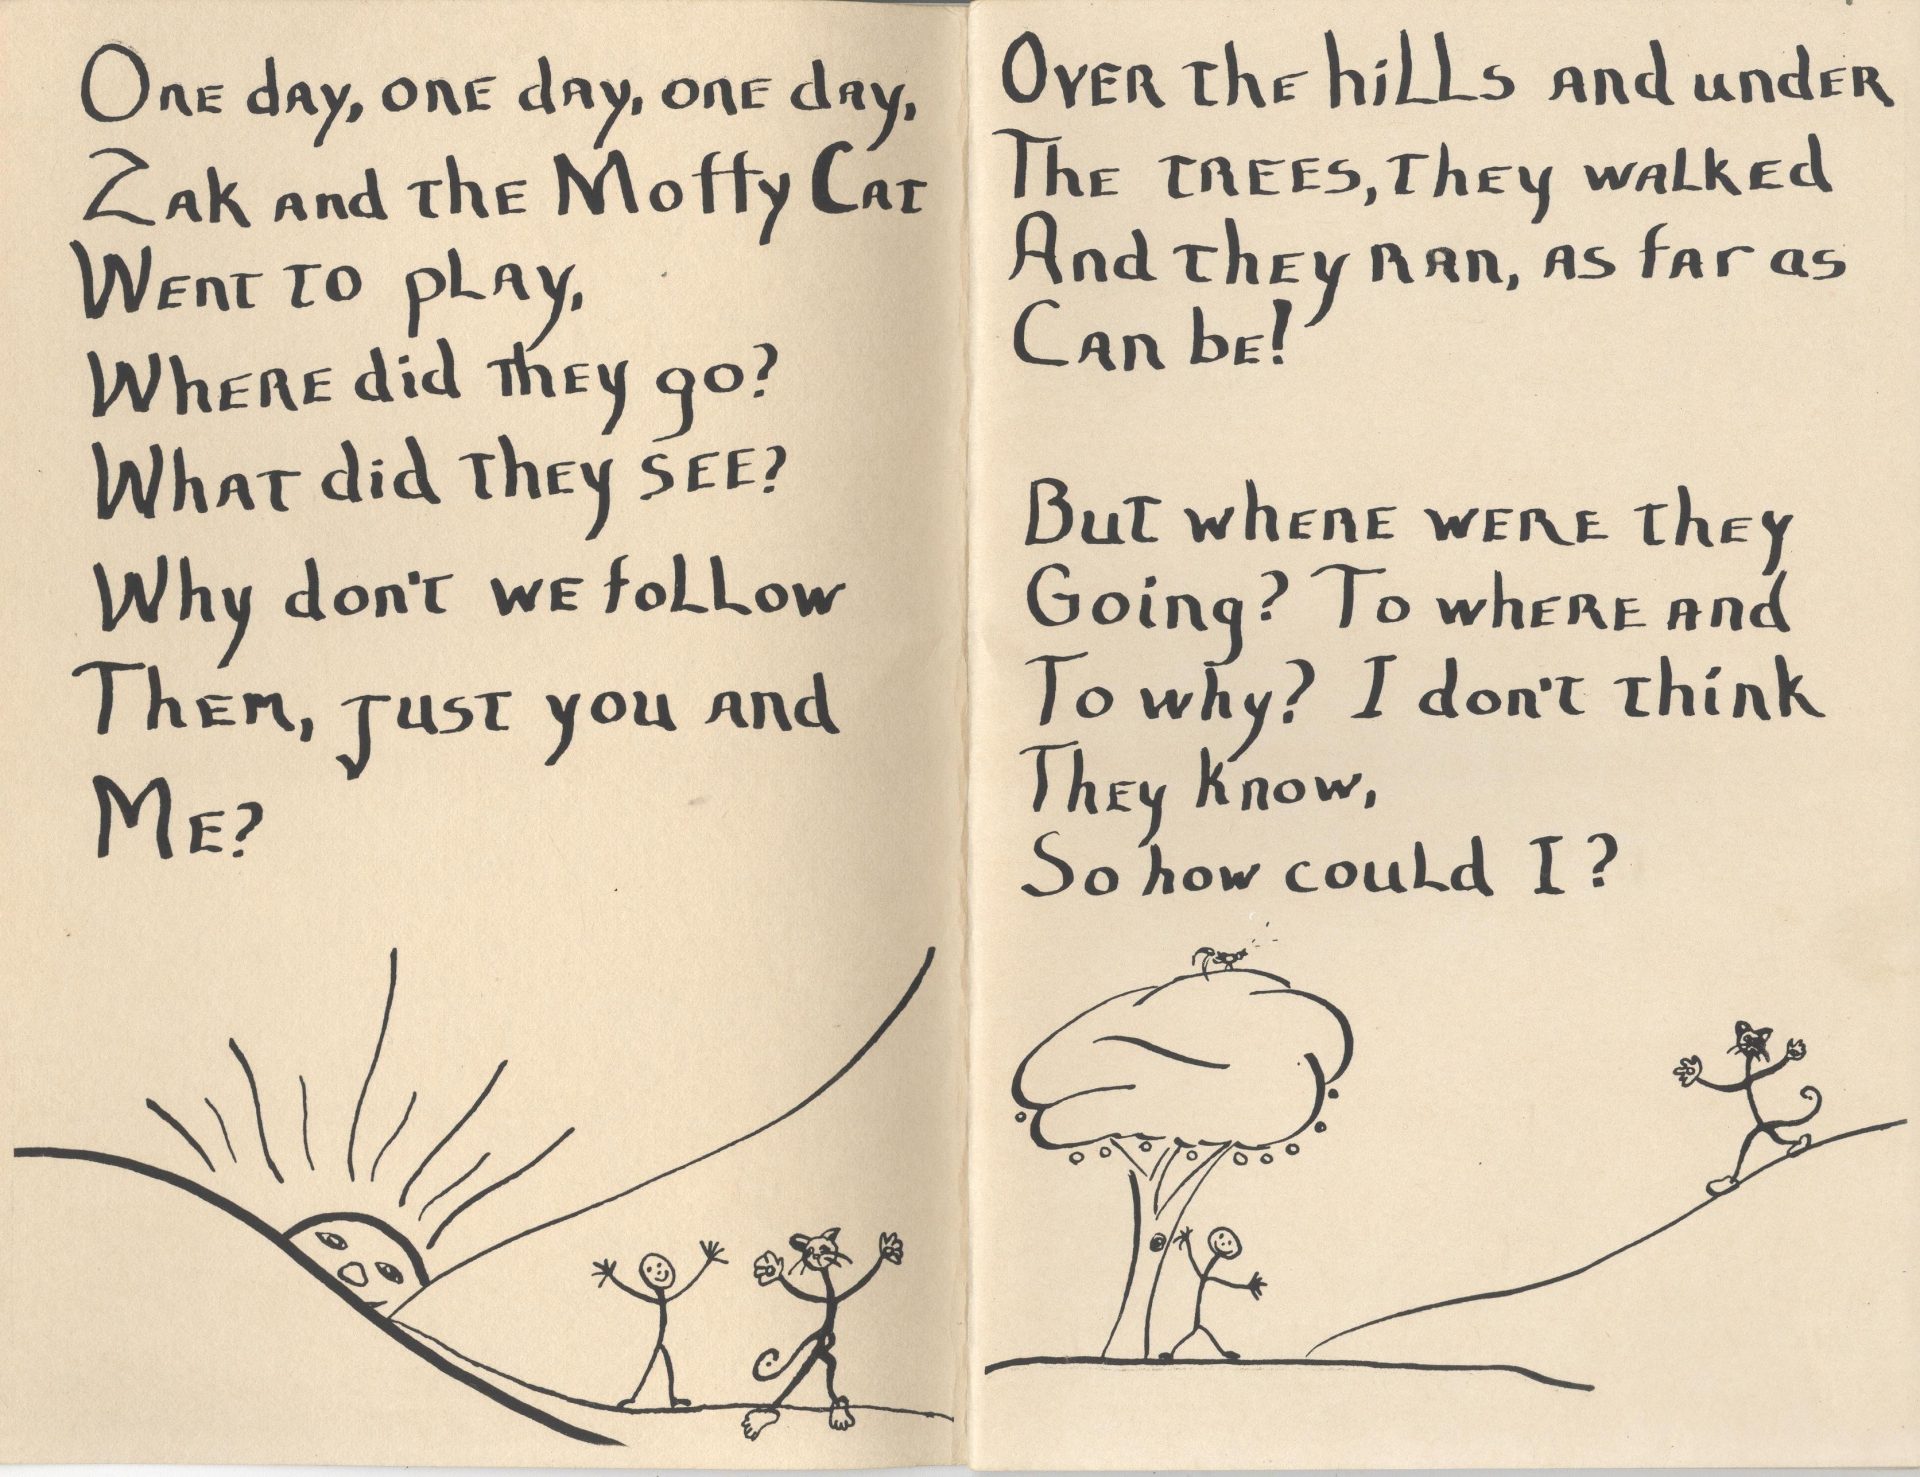 One day, one day, one day,
Zak and the Moffy Cat
Went to play,
Where did they go?
What did they see?
Why don't we follow
Them, just you and
Me?
Over the hills and under
The trees, they walked
And they ran, as far as
Can be!
But where were they
Going? To where and
To why? I don't think
They know,
So how could I?